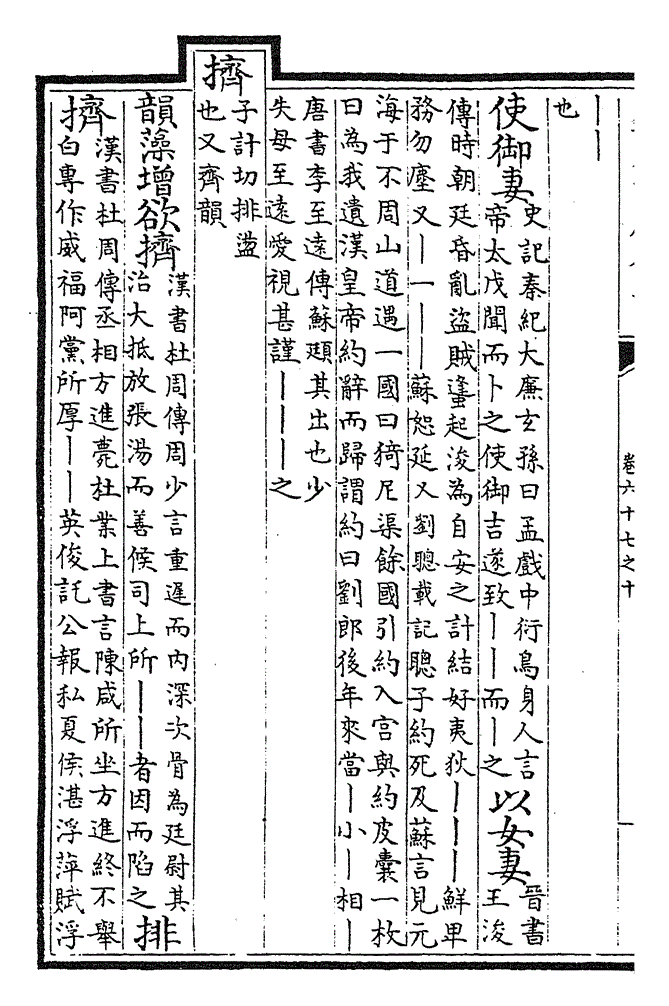 卷六十七之十
丨丨
也
使御妻
史記秦紀大廉玄孫曰孟戲中衍鳥身人言
帝太戊聞而卜之使御吉遂致丨丨而丨之
以女妻
晉書
王浚
傳時朝廷昏亂盜賊蠭起浚為自安之計結好夷狄丨丨丨鮮卑
務勿塵又丨一丨丨丨蘇恕延又劉聰載記聰子約死及蘇言見元
海于不周山道遇一國曰猗尼渠餘國引約入宮與約皮囊一枚
曰為我遺漢皇帝約辭而歸謂約曰劉郎後年來當丨小丨相丨
唐書李至遠傳蘇頲其出也少
失母至遠愛視甚謹丨丨丨之
擠
子計切排盪
也又齊韻
韻藻增欲擠
漢書杜周傳周少言重遲而內深次骨為廷尉其
治大抵放張湯而善候司上所丨丨者因而陷之
排
擠
漢書杜周傳丞相方進薨杜業上書言陳咸所坐方進終不舉
白專作威福阿黨所厚丨丨英俊託公報私夏侯湛浮萍賦浮